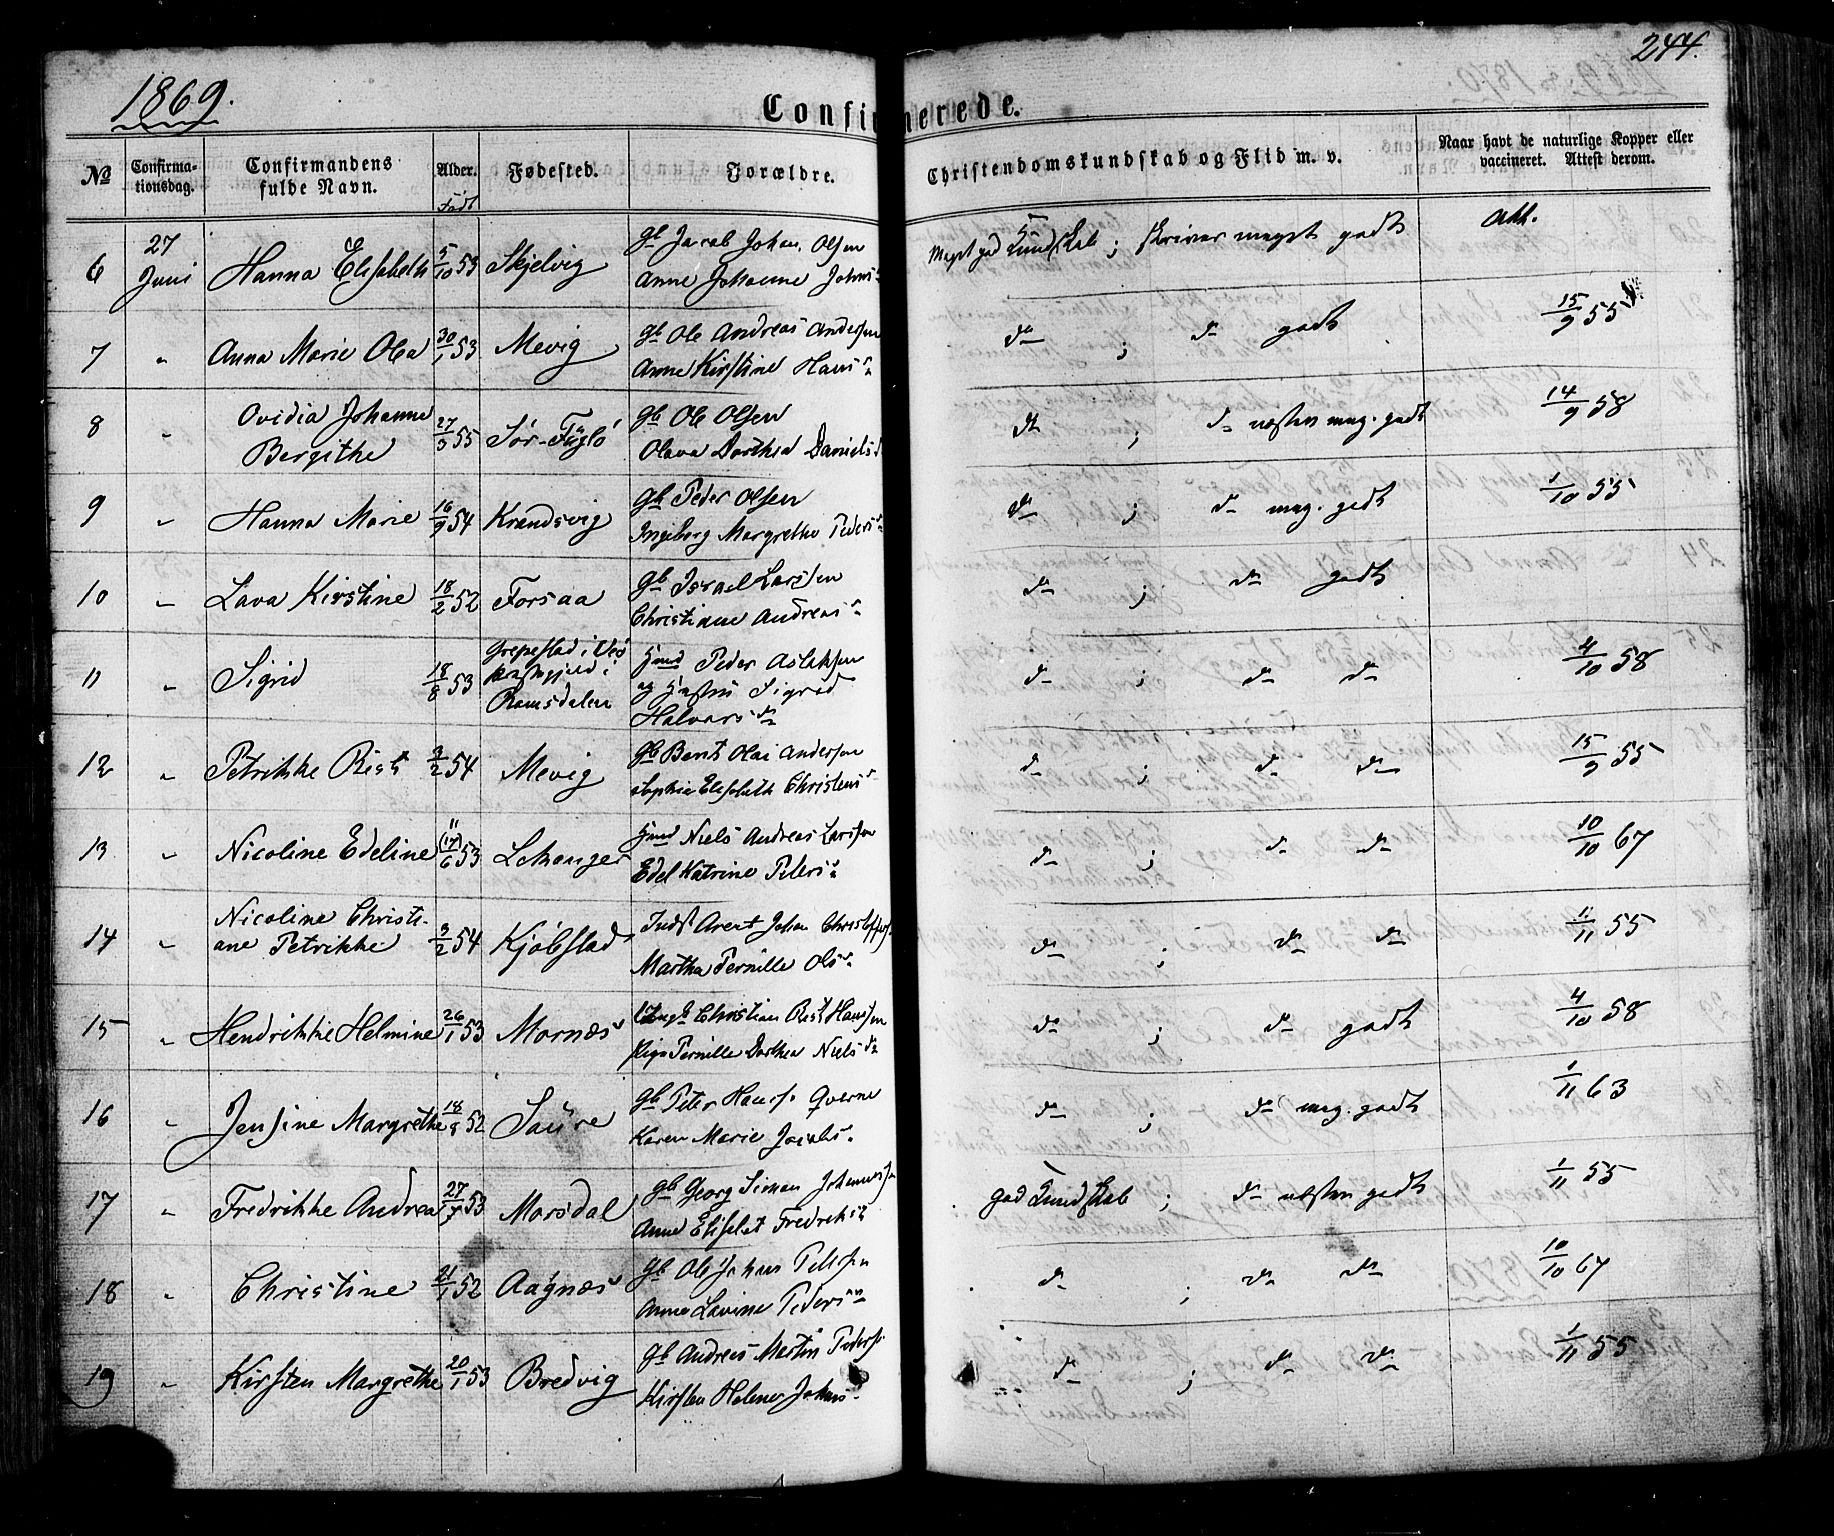 244.
1869.
Confirmerede.
No
Confirma-
tionsdag.
Confirmandens
fulde Navn.
Alder.
Født
Fødested.
Forældre.
Christendomskundskab og Flid m. v.
Naar havt de naturlige Kopper eller
vaccineret. Attest derom.
6 27 Juni Hanna Elisabeth 5/10 53 Skjelvig
Gb Jacob Johan Olsen
Anne Johanne Johns
Meget god Kundskab ; skriver meget godt Att.
7 " Anna Marie Olea 30/1 53 Mevig
Gb Ole Andreas Andersen
Anne Kirstine Hans d
do ; do godt 15/9 55
8 " Ovidia Johanne
Bergithe 27/9 55 Sør-Fuglø
Gb Ole Olsen
Olava Dorthea Daniels d
do ; do næsten meg. godt 14/9 58
9 " Hanna Marie 16/9 54 Krandsvig
Gb Peder Olsen
Ingeborg Margrethe Peders d
do ; do meg. godt 1/10 55
10 " Lava Kirstine 18/2 52 Forsaa
Gb Israel Larsen
Christiane Andreas d
do ; do godt
11 " Sigrid 18/8 53 Grepestad i Veø
Præstegjeld i
Romsdalen
Hmd Peder Aslaksen
og Hustru Sigrid
Halvors dr
do ; do do 4/10 58
12 " Petrikke Rist 3/2 54 Mevig
Gb Bent Olai Andersen
Sophie Elisabeth Christens d
do ; do do 15/9 55
13 " Nicoline Edeline 11 (17)/6 53 Lekanger
Hmd Niels Andreas Larsen
Edel Katrine Peters d
do ; do do 10/10 67
14 " Nicoline Christi-
ane Petrikke 3/2 54 Kjøbstad
Indst Arent Johan Christoffers.
Martha Pernille Ols d
do ; do do 1/11 55
15 " Hendrikke Helmine 26/1 53 Mornæs
Ungk Christian Rist Hansen
Pige Pernille Dorthea Niels dr
do ; do godt 4/10 58
16 " Jensine Margrethe 18/8 52 Saure
Gb Peter Hans. Qverne
Karen Marie Jacobs.
do ; do meg. godt 1/11 63
17 " Fredrikke Andrea 27/7 53 Morsdal
Gb Georg Simon Johannesen
Anne Elisabet Fredriks d
god Kundskab ; do næsten godt 1/11 55
18 " Christine 21/1 52 Aagnæs
Gb Ole Johan Pettersen
Anne Lavine Peders dr
do ; do do 10/10 67
19 " Kirsten Margrethe 20/1 53 Bredvig
Gb Andreas Martin Peders.
Kirsten Helene Johns d
do ; do do 1/11 55